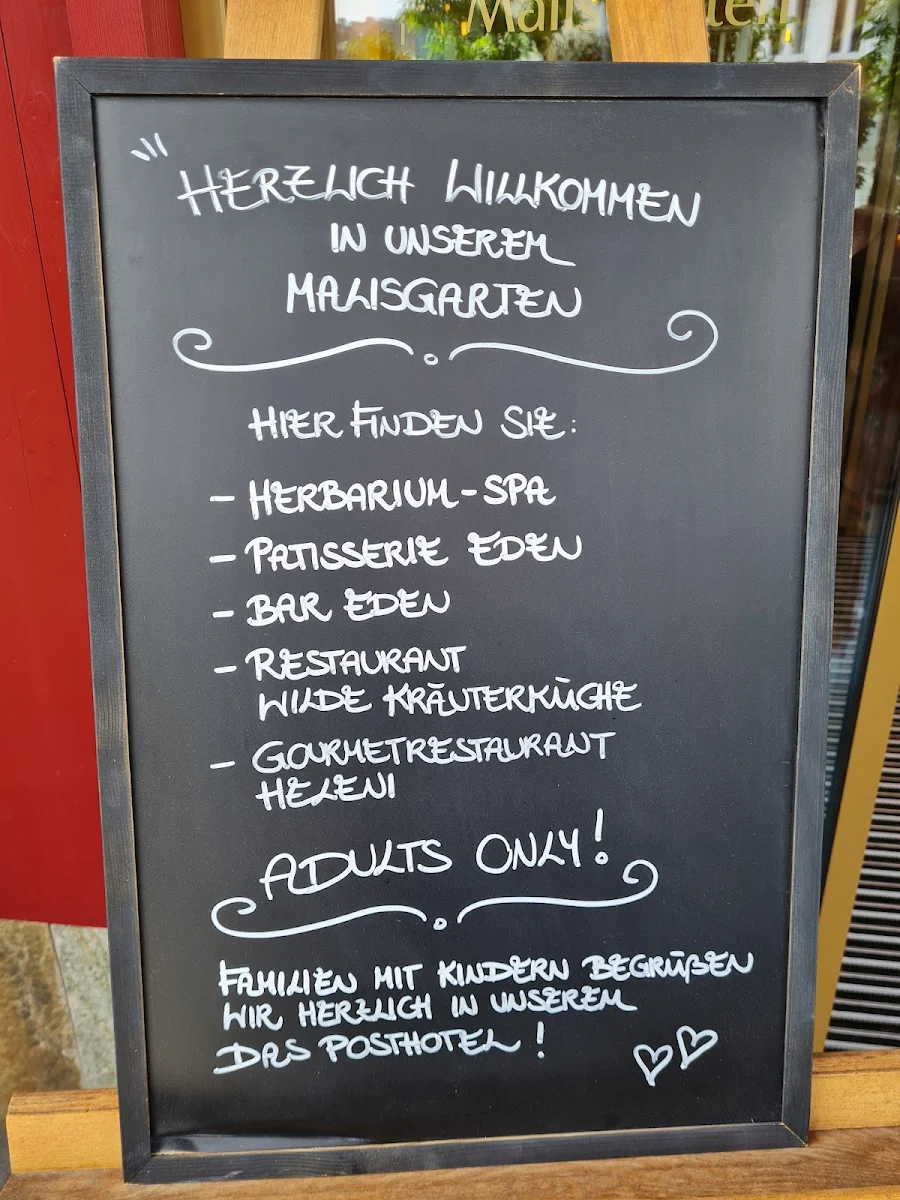 Malis
HERZLICH WILLKOMMEN
IN UNSEREM
MALISGARTEN
HIER FINDEN SIE:
- HERBARIUM-SPA
- PATISSERIE EDEN
- BAR EDEN
- RESTAURANT
WILDE KRÄUTERKÜCHE
- GOURMETRESTAURANT
HELENI
ADULTS ONLY!
FAMILIEN MIT KINDERN BEGRÜßEN
WIR HERZLICH IN UNSEREM
DAS POSTHOTEL!